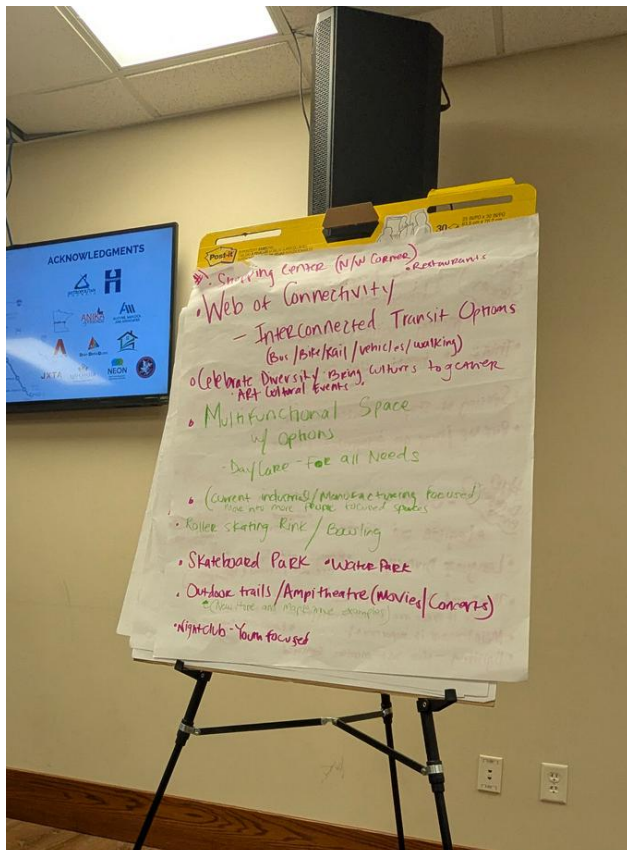 ACKNOWLEDGMENTS
H
ANIKA
JXTA
NEON
Post-it
30
Shopping Center (N/W Corner)
• Restaurants
• Web of Connectivity
– Interconnected Transit Options
(Bus/Bike/Rail/vehicles/walking)
Celebrate Diversity · Bring Cultures together
· Art Cultural Events
• Multifunctional Space
w/ Options
· Day Care - For all Needs
• (Current industrial/Manufacturing focused)
into more people focused spaces
• Roller Skating Rink / Bowling
• Skateboard Park • Water Park
• Outdoor trails/Ampitheatre (Movies/Concerts)
examples)
• Nightclub - Youth focused